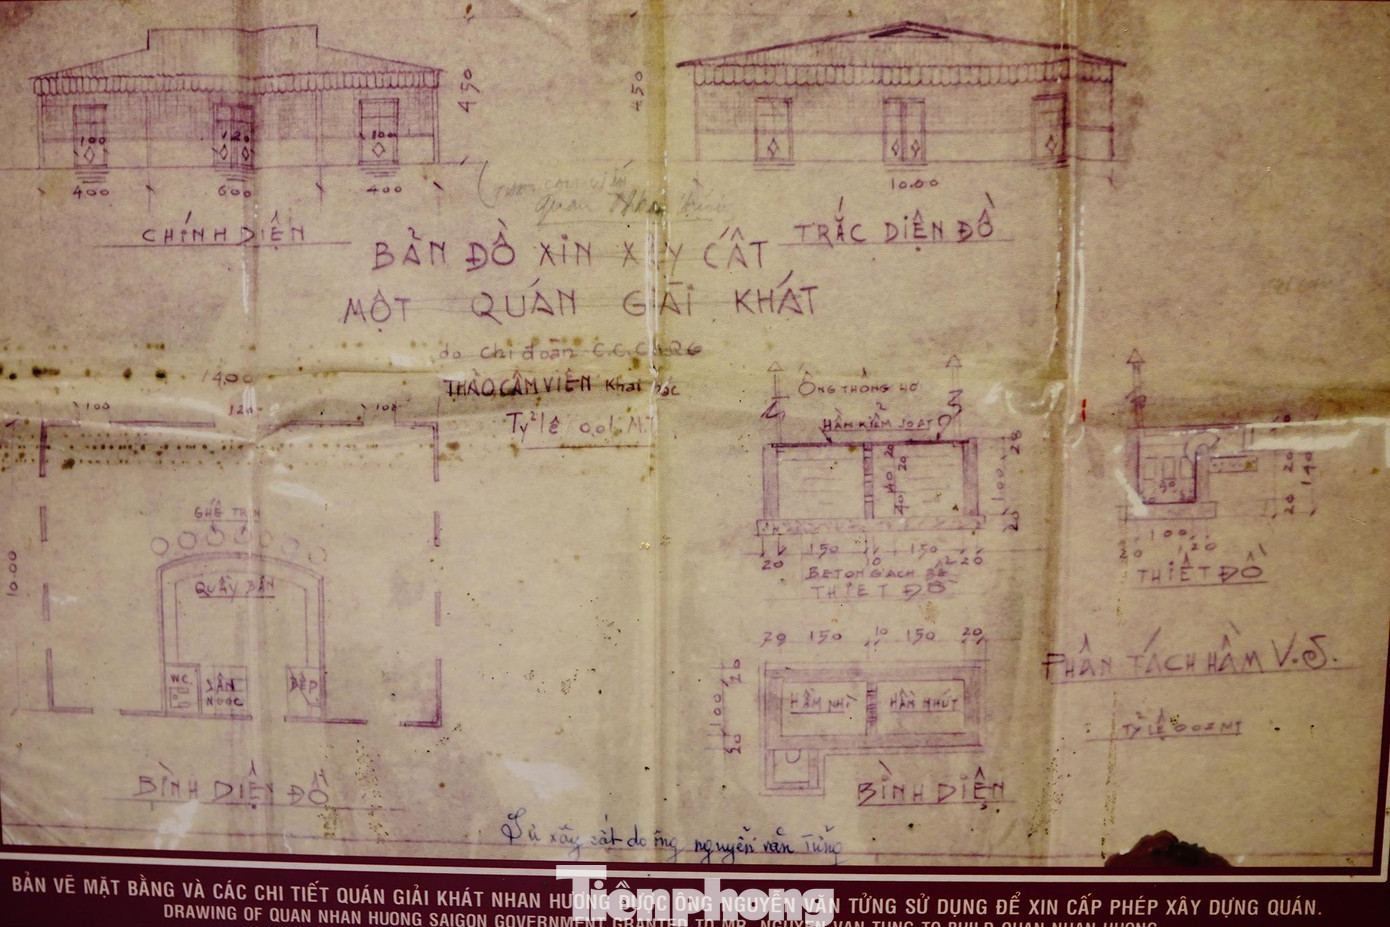 450
450
100
120
100
400
600
400
10.00
CHÍNH DIỆN
TRẮC DIỆN ĐỒ
BẢN ĐỒ XIN X Y CẤT
MỘT QUÁN GIẢI KHÁT
do Chi đoàn
THẢO CẦM VIÊN Khai
Tỷ lệ 0.01 MT
14.00
100
120
100
10.00
GHẾ TRÒN
QUẦY BÁN
WC
SÀN NƯỚC
BẾP
BÌNH DIỆN ĐỒ
ỐNG THÔNG HƠI
HẦM KIỂM SOÁT
20
20
40
40
28
100
20
20 150 10 150 20
BETON GẠCH BỂ
THIẾT ĐỒ
20 150 10 150 20
20
100
20
HẦM NHÌ
HẦM NHỨT
BÌNH DIỆN
20
140
20
20 100 20
THIẾT ĐỒ
PHÂN TÁCH HẦM V.S.
TỶ LỆ 0.02 MT
xây cất do ông nguyễn văn Tửng
Tiềnphong
BẢN VẼ MẶT BẰNG VÀ CÁC CHI TIẾT QUÁN GIẢI KHÁT NHAN HƯƠNG ĐƯỢC ÔNG NGUYỄN VĂN TỬNG SỬ DỤNG ĐỂ XIN CẤP PHÉP XÂY DỰNG QUÁN.
DRAWING OF QUAN NHAN HUONG SAIGON GOVERNMENT GRANTED TO MR. NGUYEN VAN TUNG TO BUILD QUAN NHAN HUONG